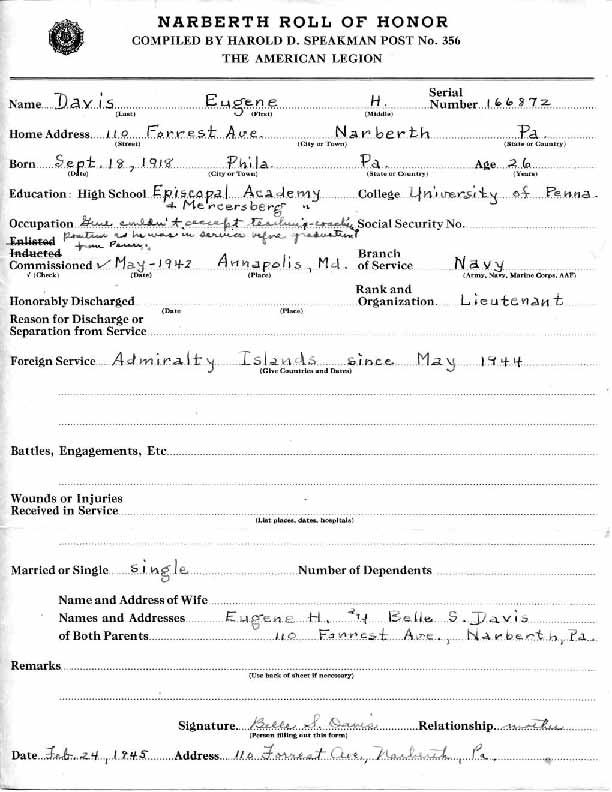 NARBERTH ROLL OF HONOR
COMPILED BY HAROLD D. SPEAKMAN POST No. 356
THE AMERICAN LEGION
Name Davis Eugene H. Serial Number 166872
(Last) (First) (Middle)
Home Address 110 Forrest Ave. Narberth Pa.
(Street) (City or Town) (State or Country)
Born Sept. 18, 1918 Phila. Pa. Age 26
(Date) (City or Town) (State or Country) (Years)
Education: High School Episcopal Academy College University of Penna.
& Mercersberg "
Occupation Gene couldn't accept teaching-coaching Social Security No.
Enlisted position as he was in service before graduation
Inducted from Penn. Branch
Commissioned ✓ May-1942 Annapolis, Md. of Service Navy
√ (Check) (Date) (Place) (Army, Navy, Marine Corps, AAF)
Rank and
Honorably Discharged Organization Lieutenant
(Date (Place)
Reason for Discharge or
Separation from Service
Foreign Service Admiralty Islands since May 1944
(Give Countries and Dates)
Battles, Engagements, Etc
Wounds or Injuries
Received in Service
(List places, dates, hospitals)
Married or Single single Number of Dependents
Name and Address of Wife
Names and Addresses Eugene H. & Belle S. Davis
of Both Parents 110 Forrest Ave., Narberth, Pa.
Remarks
(Use back of sheet if necessary)
Signature Belle S. Davis Relationship mother
(Person filling out this form)
Date Feb. 24, 1945 Address 110 Forrest Ave, Narberth, Pa.